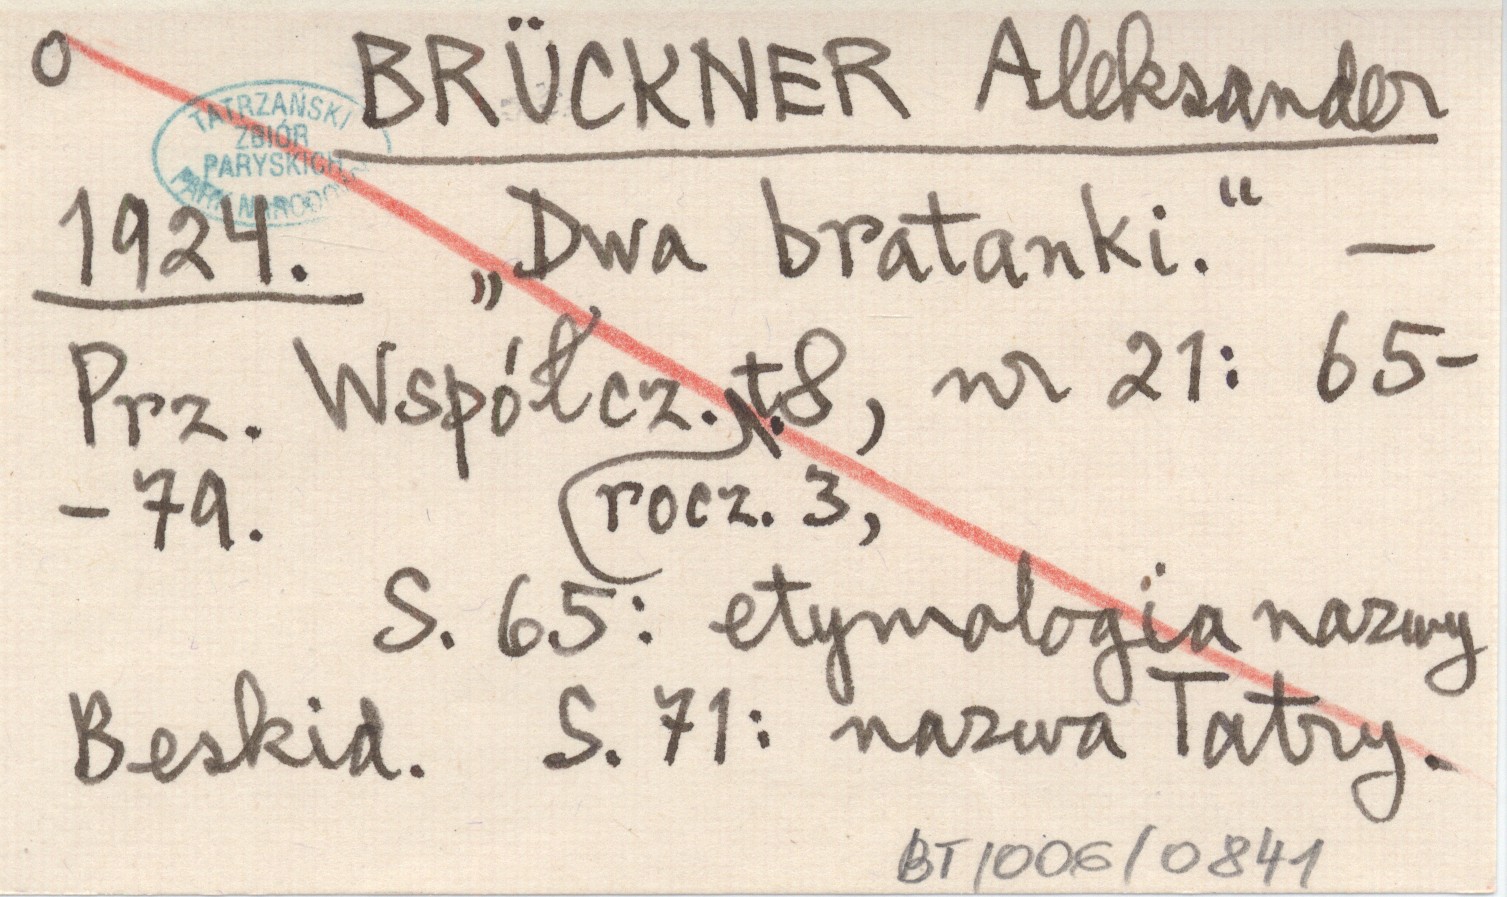 o BRÜCKNER Aleksander
TATRZAŃSKI
ZBIÓR
PARYSKICH
PARK NARODOWY
1924. „Dwa bratanki.“ —
Prz. Współcz. t.8, nr 21: 65-
-79. rocz. 3,
S. 65: etymologia nazwy
Beskid. S. 71: nazwa Tatry.
BT/006/0841